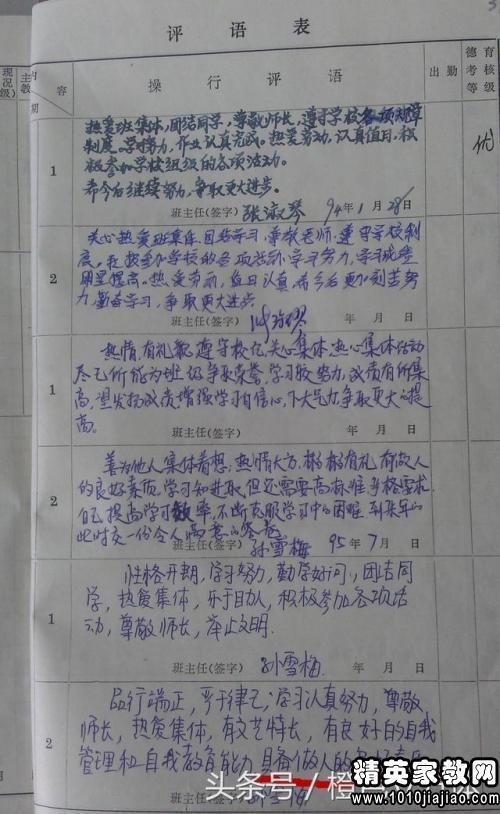 评语表
现况级)
主教
内容
期
操行评语
出勤
德育考核等级
1
热爱班集体,团结同学,尊敬师长,遵守学校各项规章
制度。学习努力,作业认真完成。热爱劳动,认真值日,积
极参加学校组织的各项活动。
希今后继续努力,争取更大进步。
优
班主任(签字) 张淑琴 94年1月28日
2
关心热爱班集体,团结学习,尊敬老师,遵守学校制
度。积极参加学校的各项活动,学习努力,学习成绩
明显提高。热爱劳动,值日认真,希今后更加刻苦努
力,勤奋学习,争取更大进步
班主任(签字) 年 月 日
1
热情,有礼貌,遵守校纪,关心集体,热心集体活动
尽己所能为班级争取荣誉,学习较努力,成绩有所提
高,望发扬成绩,增强学习自信心,下大气力争取更大的提
高。
班主任(签字) 年 月 日
2
善为他人集体着想,热情大方,彬彬有礼,有做人
的良好素质,学习知进取,但还需要高标准严格要求
自己,提高学习效率,不断克服学习中的困难,到来年的
此时交一份令人满意的答卷
班主任(签字) 孙雪梅 95年7月 日
1
性格开朗,学习努力,勤学好问,团结同
学,热爱集体,乐于助人,积极参加各项活
动,尊敬师长,举止文明.
班主任(签字) 孙雪梅 年 月 日
2
品行端正,严于律己,学习认真努力,尊敬
师长,热爱集体,有文艺特长,有良好的自我
管理和自我教育能力,具备做人的
班主任(签字)
头条号/橙
精英家教网
www.1010jiajiao.com